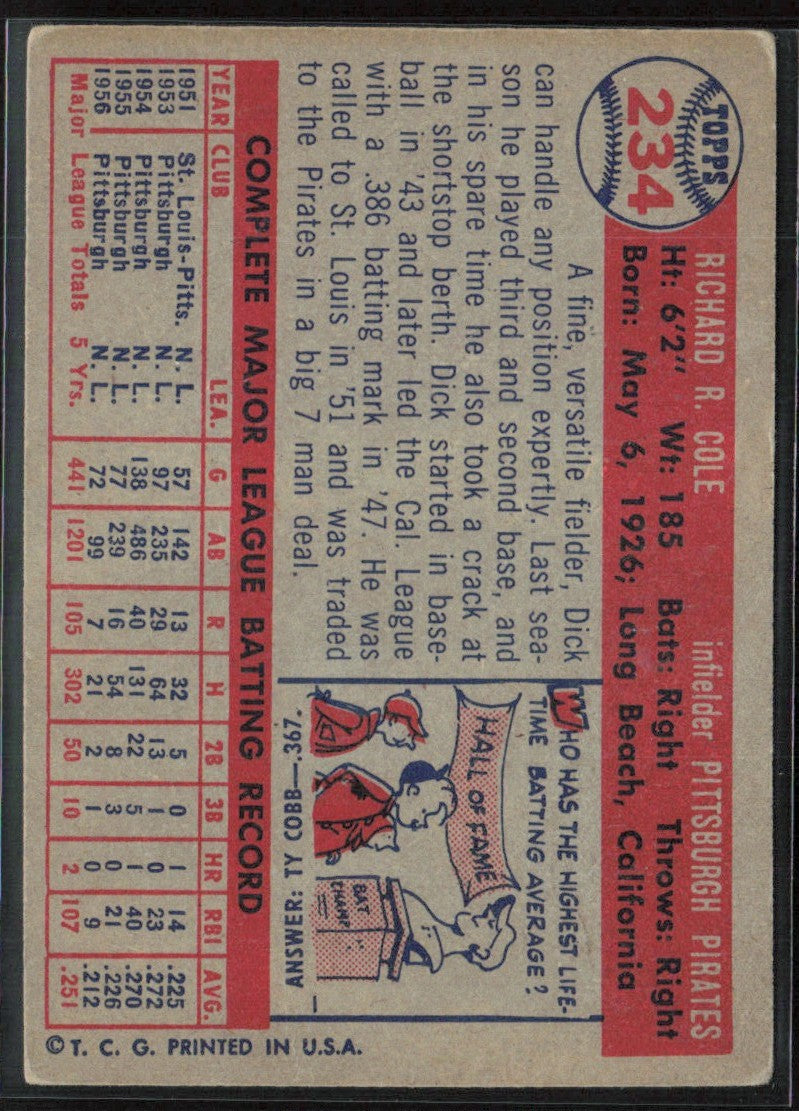 TOPPS
234
RICHARD R. COLE infielder PITTSBURGH PIRATES
Ht: 6'2" Wt: 185 Bats: Right Throws: Right
Born: May 6, 1926; Long Beach, California
A fine, versatile fielder, Dick
can handle any position expertly. Last sea-
son he played third and second base, and
in his spare time he also took a crack at
the shortstop berth. Dick started in base-
ball in '43 and later led the Cal. League
with a .386 batting mark in '47. He was
called to St. Louis in '51 and was traded
to the Pirates in a big 7 man deal.
WHO HAS THE HIGHEST LIFE-
TIME BATTING AVERAGE?
HALL OF FAME
BAT
CHAMP
ANSWER: TY COBB—.367.
COMPLETE MAJOR LEAGUE BATTING RECORD
YEAR CLUB LEA. G AB R H 2B 3B HR RBI AVG.
1951 St. Louis-Pitts. N. L. 57 142 13 32 5 0 1 14 .225
1953 Pittsburgh N. L. 97 235 29 64 13 1 0 23 .272
1954 Pittsburgh N. L. 138 486 40 131 22 5 1 40 .270
1955 Pittsburgh N. L. 77 239 16 54 8 3 0 21 .226
1956 Pittsburgh N. L. 72 99 7 21 2 1 0 9 .212
Major League Totals 5 Yrs. 441 1201 105 302 50 10 2 107 .251
© T. C. G. PRINTED IN U.S.A.